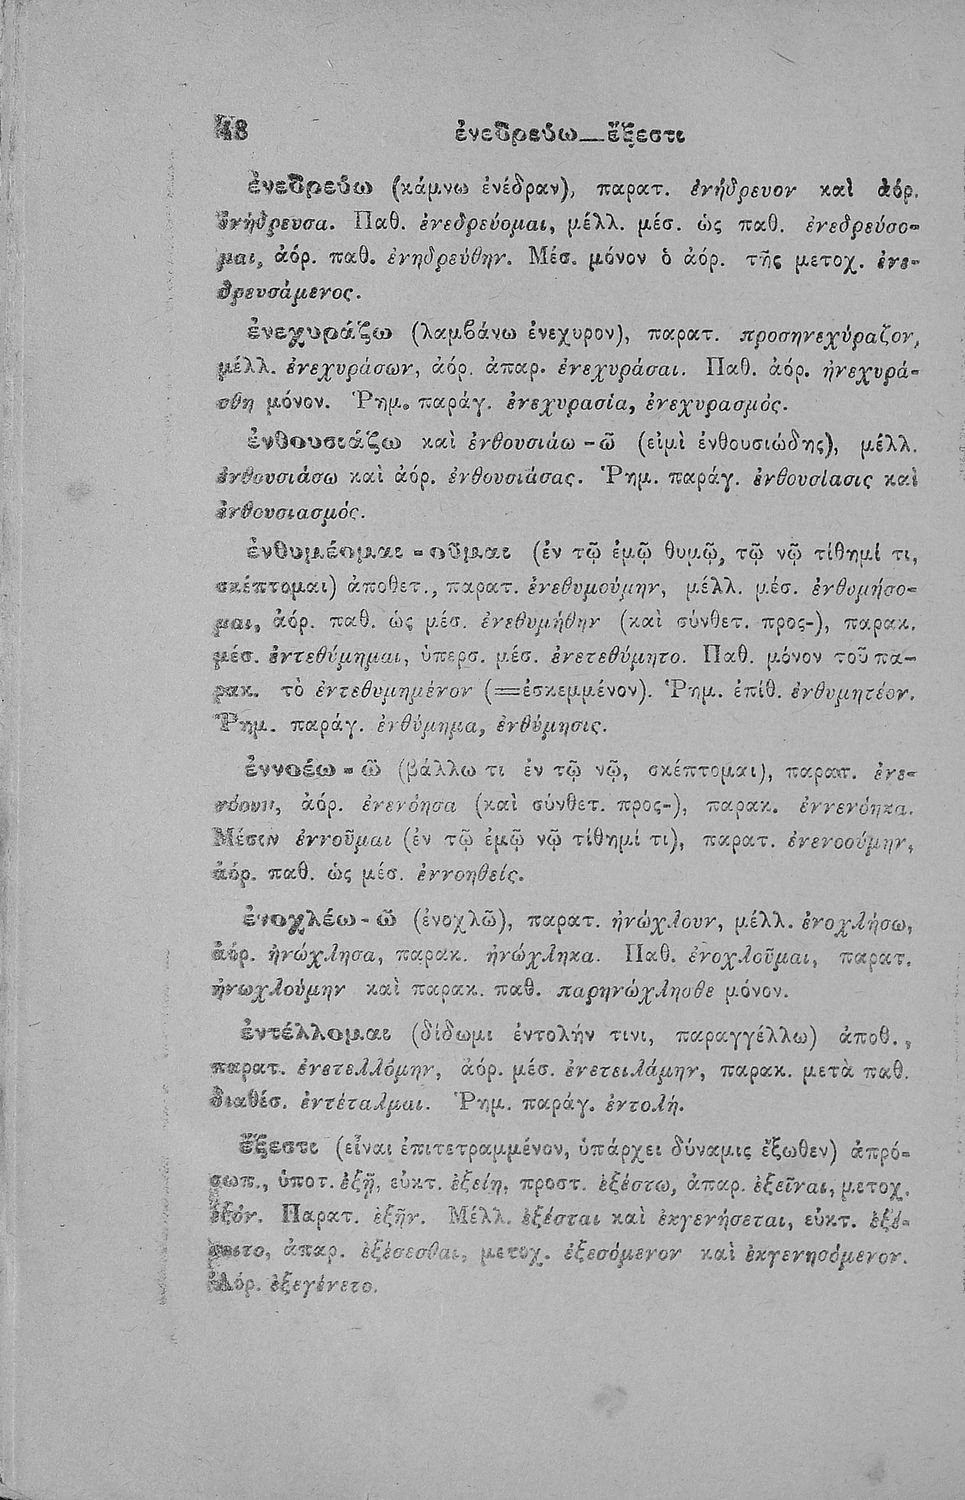 48 ἐνεδρεύω—ἔξεστι
ἐνεδρεύω (κάμνω ἐνέδραν), παρατ. ἐνήδρευον καὶ ἀόρ.
ἐνήδρευσα. Παθ. ἐνεδρεύομαι, μέλλ. μέσ. ὡς παθ. ἐνεδρεύσο-
μαι, ἀόρ. παθ. ἐνηδρεύθην. Μέσ. μόνον ὁ ἀόρ. τῆς μετοχ. ἐνε-
δρευσάμενος.
ἐνεχυράζω (λαμβάνω ἐνεχυρον), παρατ. προσηνεχύραζον,
μέλλ. ἐνεχυράσων, ἀόρ. ἀπαρ. ἐνεχυράσαι. Παθ. ἀόρ. ἠνεχυρά-
σθη μόνον. Ῥημ. παράγ. ἐνεχυρασία, ἐνεχυρασμός.
ἐνθουσιάζω καὶ ἐνθουσιάω -ῶ (εἰμὶ ἐνθουσιώδης), μέλλ.
ἐνθουσιάσω καὶ ἀόρ. ἐνθουσιάσας. Ῥημ. παράγ. ἐνθουσίασις καὶ
ἐνθουσιασμός.
ἐνθυμέομαι - οῦμαι (ἐν τῷ ἐμῷ θυμῷ, τῷ νῷ τίθημί τι,
σκέπτομαι) ἀποθετ., παρατ. ἐνεθυμούμην, μέλλ. μέσ. ἐνθυμήσο-
μαι, ἀόρ. παθ. ὡς μέσ. ἐνεθυμήθην (καὶ σύνθετ. προς-), παρακ.
μέσ. ἐντεθύμημαι, ὑπερσ. μέσ. ἐνετεθύμητο. Παθ. μόνον τοῦ πα-
ρακ. τὸ ἐντεθυμημένον (=ἐσκεμμένον). Ῥημ. ἐπίθ. ἐνθυμητέον.
Ῥημ. παράγ. ἐνθύμημα, ἐνθύμησις.
ἐννοέω - ῶ (βάλλω τι ἐν τῷ νῷ, σκέπτομαι), παρατ. ἐνε-
νόουν, ἀόρ. ἐνενόησα (καὶ σύνθετ. προς-), παρακ. ἐννενόηκα.
Μέσον ἐννοῦμαι (ἐν τῷ ἐμῷ νῷ τίθημί τι), παρατ. ἐνενοούμην,
ἀόρ. παθ. ὡς μέσ. ἐννοηθείς.
ἐνοχλέω - ῶ (ἐνοχλῶ), παρατ. ἠνώχλουν, μέλλ. ἐνοχλήσω,
ἀόρ. ἠνώχλησα, παρακ. ἠνώχληκα. Παθ. ἐνοχλοῦμαι, παρατ.
ἠνωχλούμην καὶ παρακ. παθ. παρηνώχλησθε μόνον.
ἐντέλλομαι (δίδωμι ἐντολήν τινι, παραγγέλλω) ἀποθ.,
παρατ. ἐνετελλόμην, ἀόρ. μέσ. ἐνετειλάμην, παρακ. μετὰ παθ.
διαθέσ. ἐντέταλμαι. Ῥημ. παράγ. ἐντολή.
ἔξεστι (εἶναι ἐπιτετραμμένον, ὑπάρχει δύναμις ἔξωθεν) ἀπρό-
σωπ., ὑποτ. ἐξῇ, εὐκτ. ἐξείη, προστ. ἐξέστω, ἀπαρ. ἐξεῖναι, μετοχ.
ἐξόν. Παρατ. ἐξῆν. Μέλλ. ἐξέσται καὶ ἐκγενήσεται, εὐκτ. ἐξέ-
σοιτο, ἀπαρ. ἐξέσεσθαι, μετοχ. ἐξεσόμενον καὶ ἐκγενησόμενον.
Ἀόρ. ἐξεγένετο.